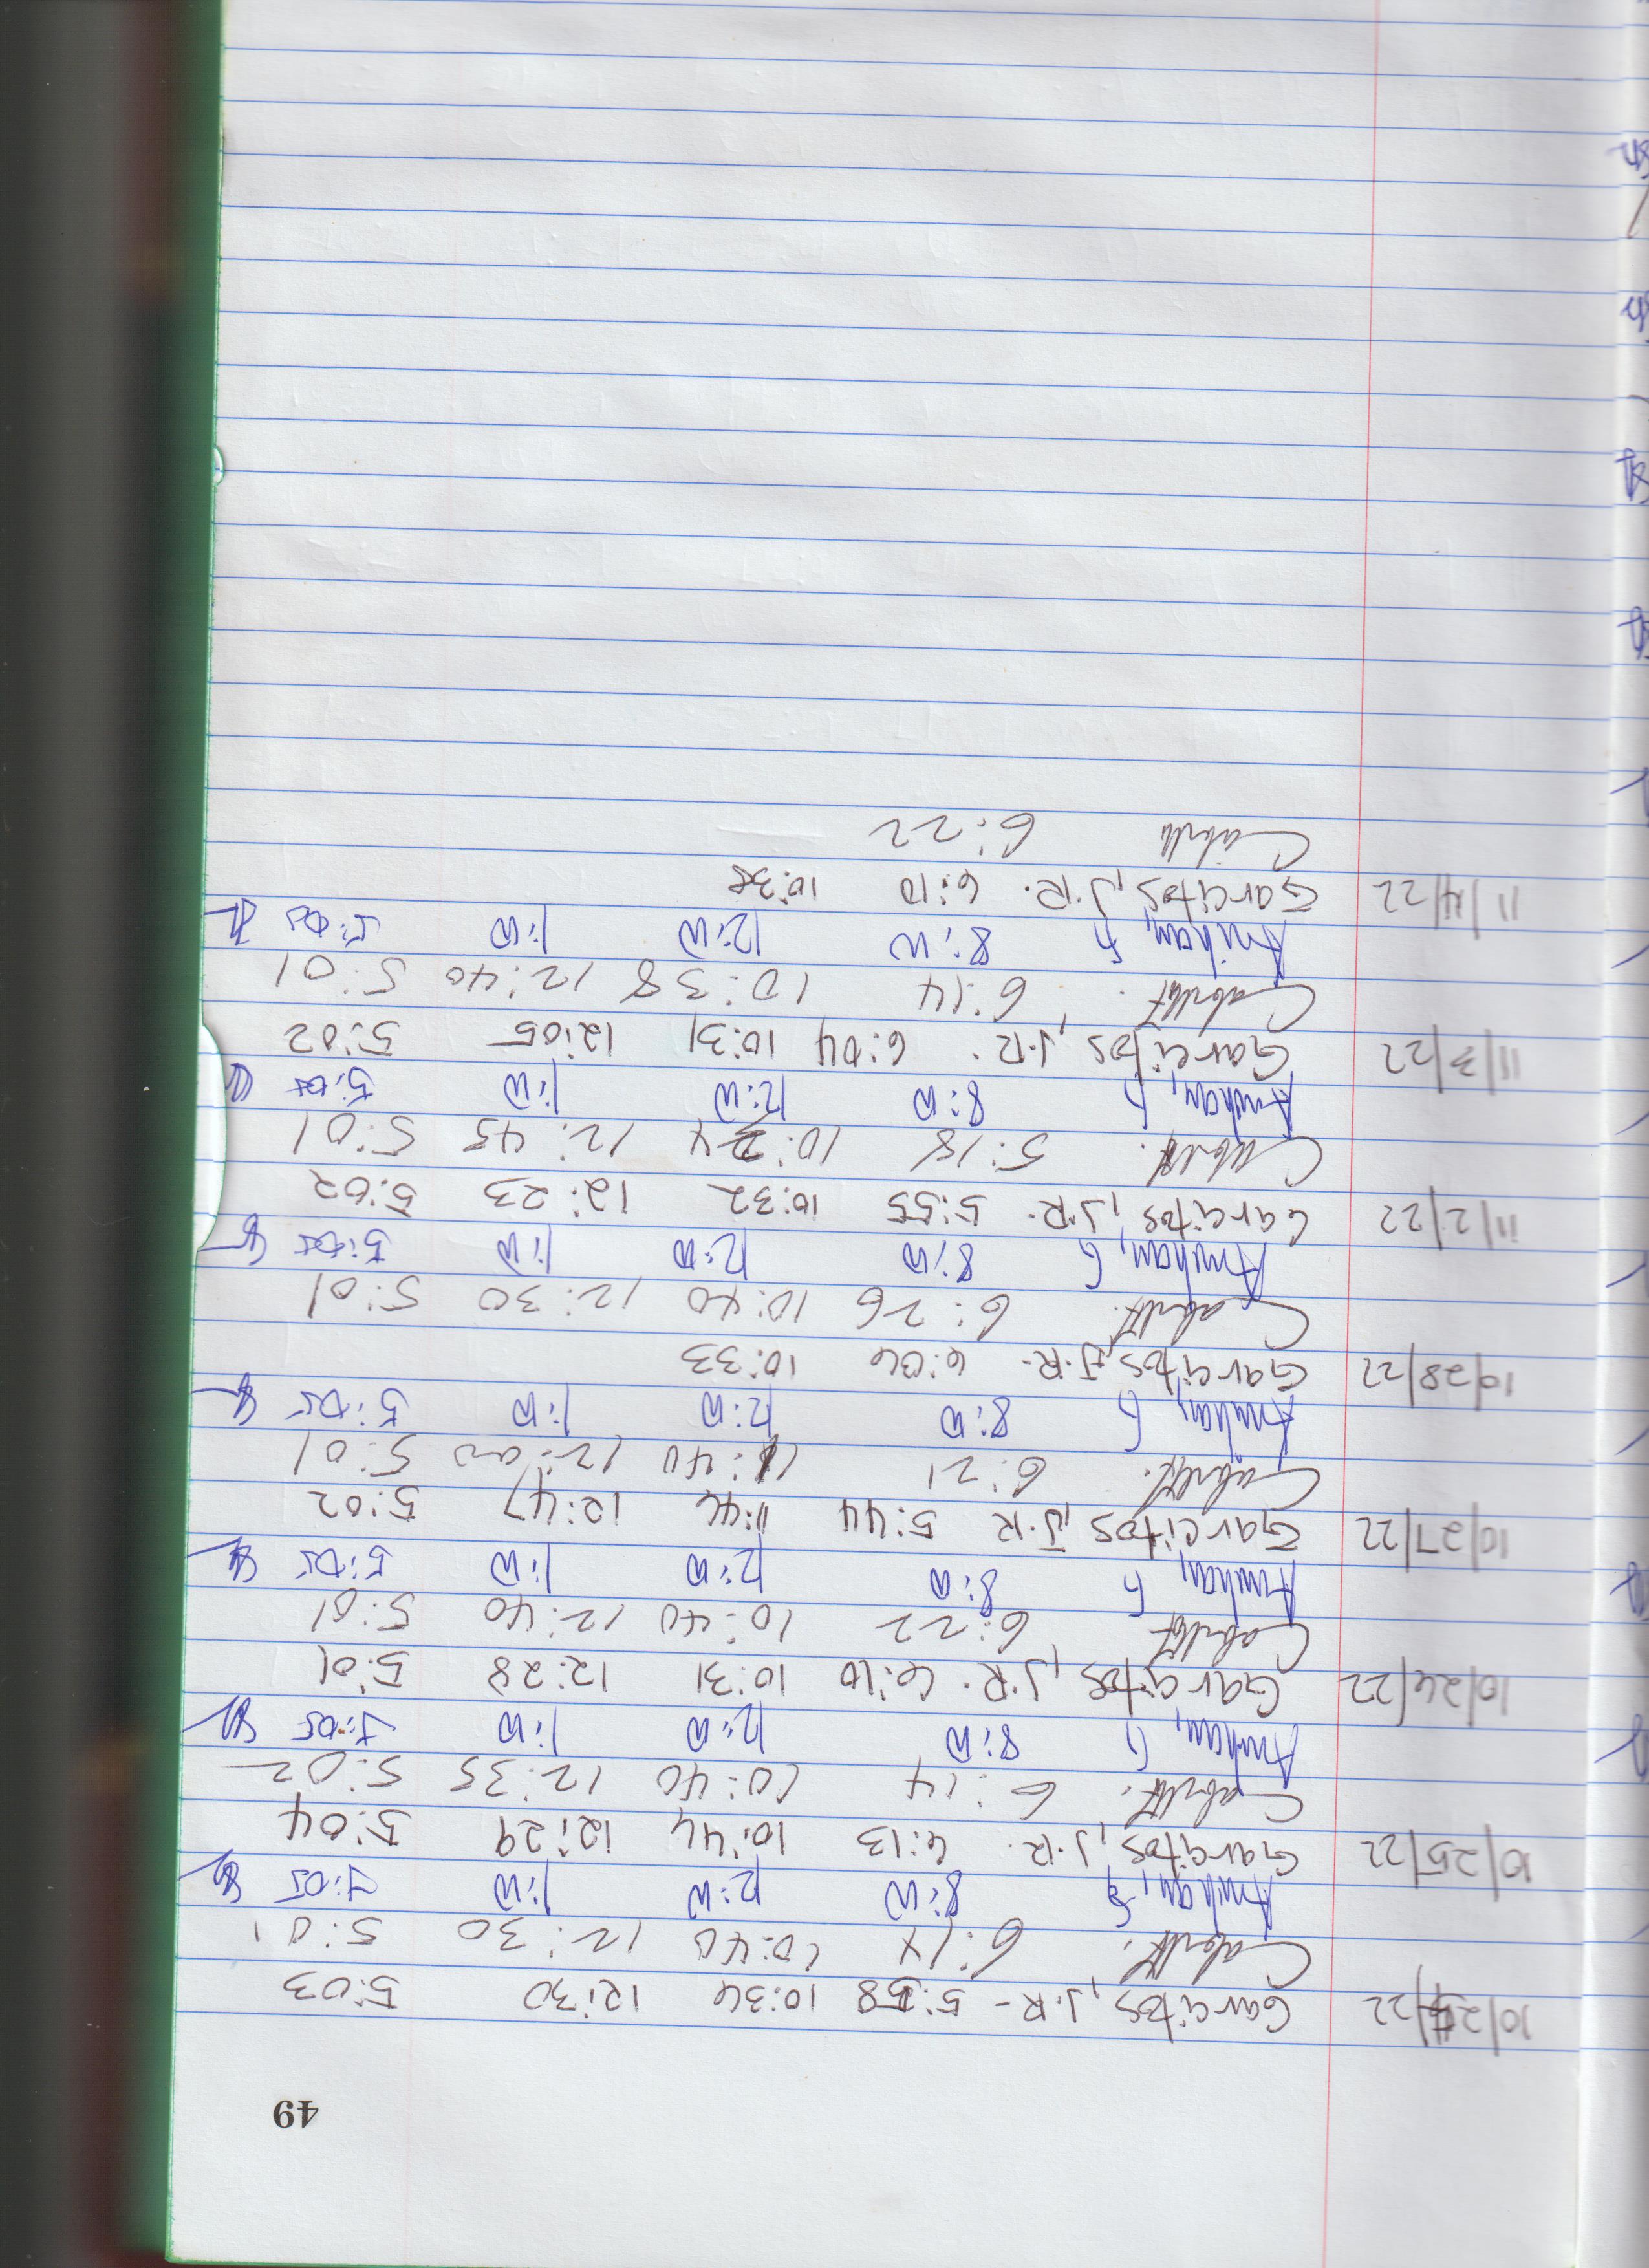 49
10/24/22 Garcitos, J.R- 5:58 10:36 12:30 5:03
6:14 10:40 12:30 5:01
Amihan, G 8:00 12:00 1:00 5:05
10/25/22 Garcitos, J.R. 6:13 10:44 12:29 5:04
6:14 10:40 12:35 5:02
Amihan, G 8:00 12:00 1:00 5:05
10/26/22 Garcitos, J.R. 6:10 10:31 12:28 5:01
6:22 10:40 12:40 5:01
Amihan, G 8:00 12:00 1:00 5:05
10/27/22 Garcitos, J.R 5:44 11:46 12:47 5:02
6:21 11:40 12:00 5:01
Amihan, G 8:00 12:00 1:00 5:05
10/28/22 Garcitos, J.R. 6:06 10:33
6:26 10:40 12:30 5:01
Amihan, G 8:00 12:00 1:00 5:05
11/2/22 Garcitos, J.R. 5:55 10:32 12:23 5:02
5:18 10:24 12:45 5:01
Amihan, G 8:00 12:00 1:00 5:05
11/3/22 Garcitos, J.R. 6:04 10:31 12:05 5:02
6:14 10:38 12:40 5:01
Amihan, G 8:00 12:00 1:00 5:05
11/4/22 Garcitos, J.R. 6:10 10:38
6:22